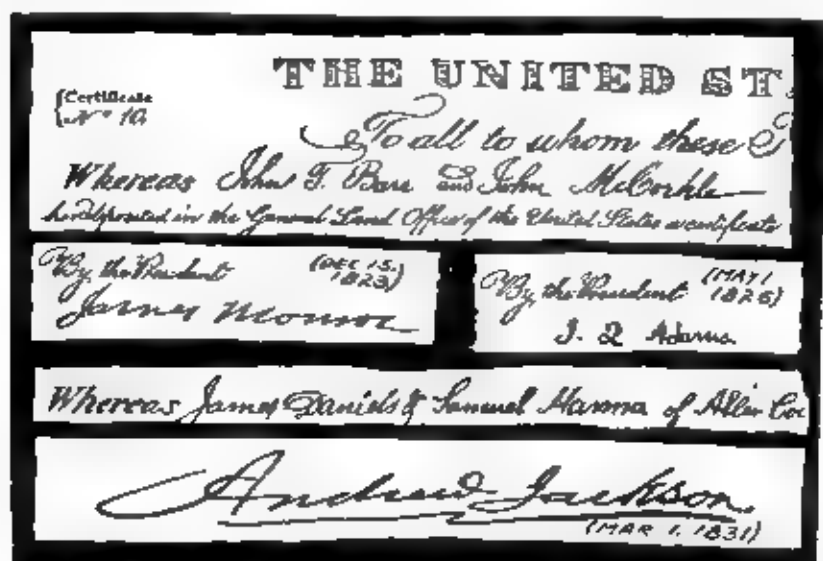 THE UNITED ST
Certificate
No 10
To all to whom these P
Whereas John T. Barr and John McCorkle
has deposited in the General Land Office of the United States a certificate
By the President
(DEC 15. 1823)
James Monroe
By the President
(MAY 1 1825)
J. Q Adams
Whereas James Daniels & Samuel Hamma of Allen Cou
Andrew Jackson
(MAR 1. 1831)